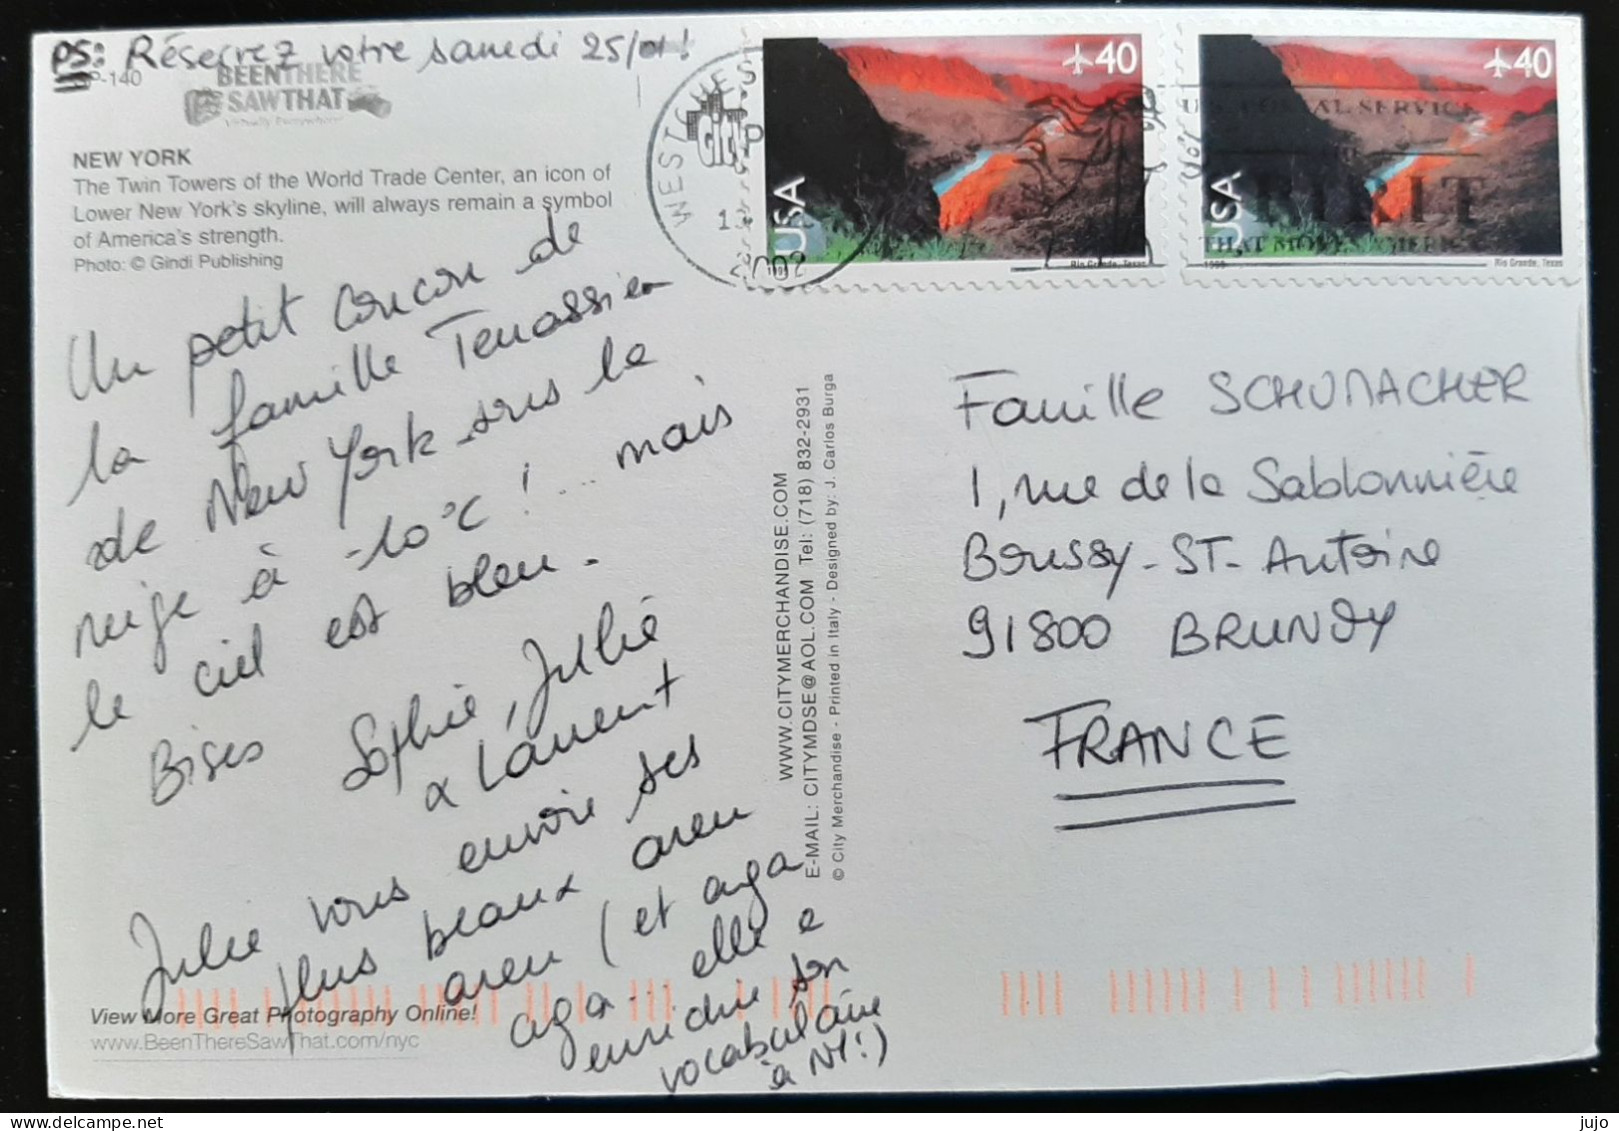 PS: Réservez votre samedi 25/01!
P-140
BEENTHERE
SAWTHAT
Virtually Everywhere!
NEW YORK
The Twin Towers of the World Trade Center, an icon of
Lower New York's skyline, will always remain a symbol
of America's strength.
Photo: © Gindi Publishing
Un petit coucou de
la famille Tenassien
de New York sous la
neige à -10°C! ... mais
le ciel est bleu.
Bises Sophie, Julie
& Laurent
Julie vous envoie ses
plus beaux areu
areu (et aga
aga... elle a
enrichie son
vocabulaire
à NY!)
View More Great Photography Online!
www.BeenThereSawThat.com/nyc
WWW.CITYMERCHANDISE.COM
E-MAIL: CITYMDSE@AOL.COM Tel: (718) 832-2931
© City Merchandise - Printed in Italy - Designed by: J. Carlos Burga
CITY
WESTCHES
2002
40
USA
1999
Rio Grande, Texas
40
USA
1999
Rio Grande, Texas
POSTAL SERVICE
SPIRIT
THAT MOVES AMERICA
Famille SCHUMACHER
1, rue de la Sablonnière
Boussy-ST-Antoine
91800 BRUNOY
FRANCE
jujo